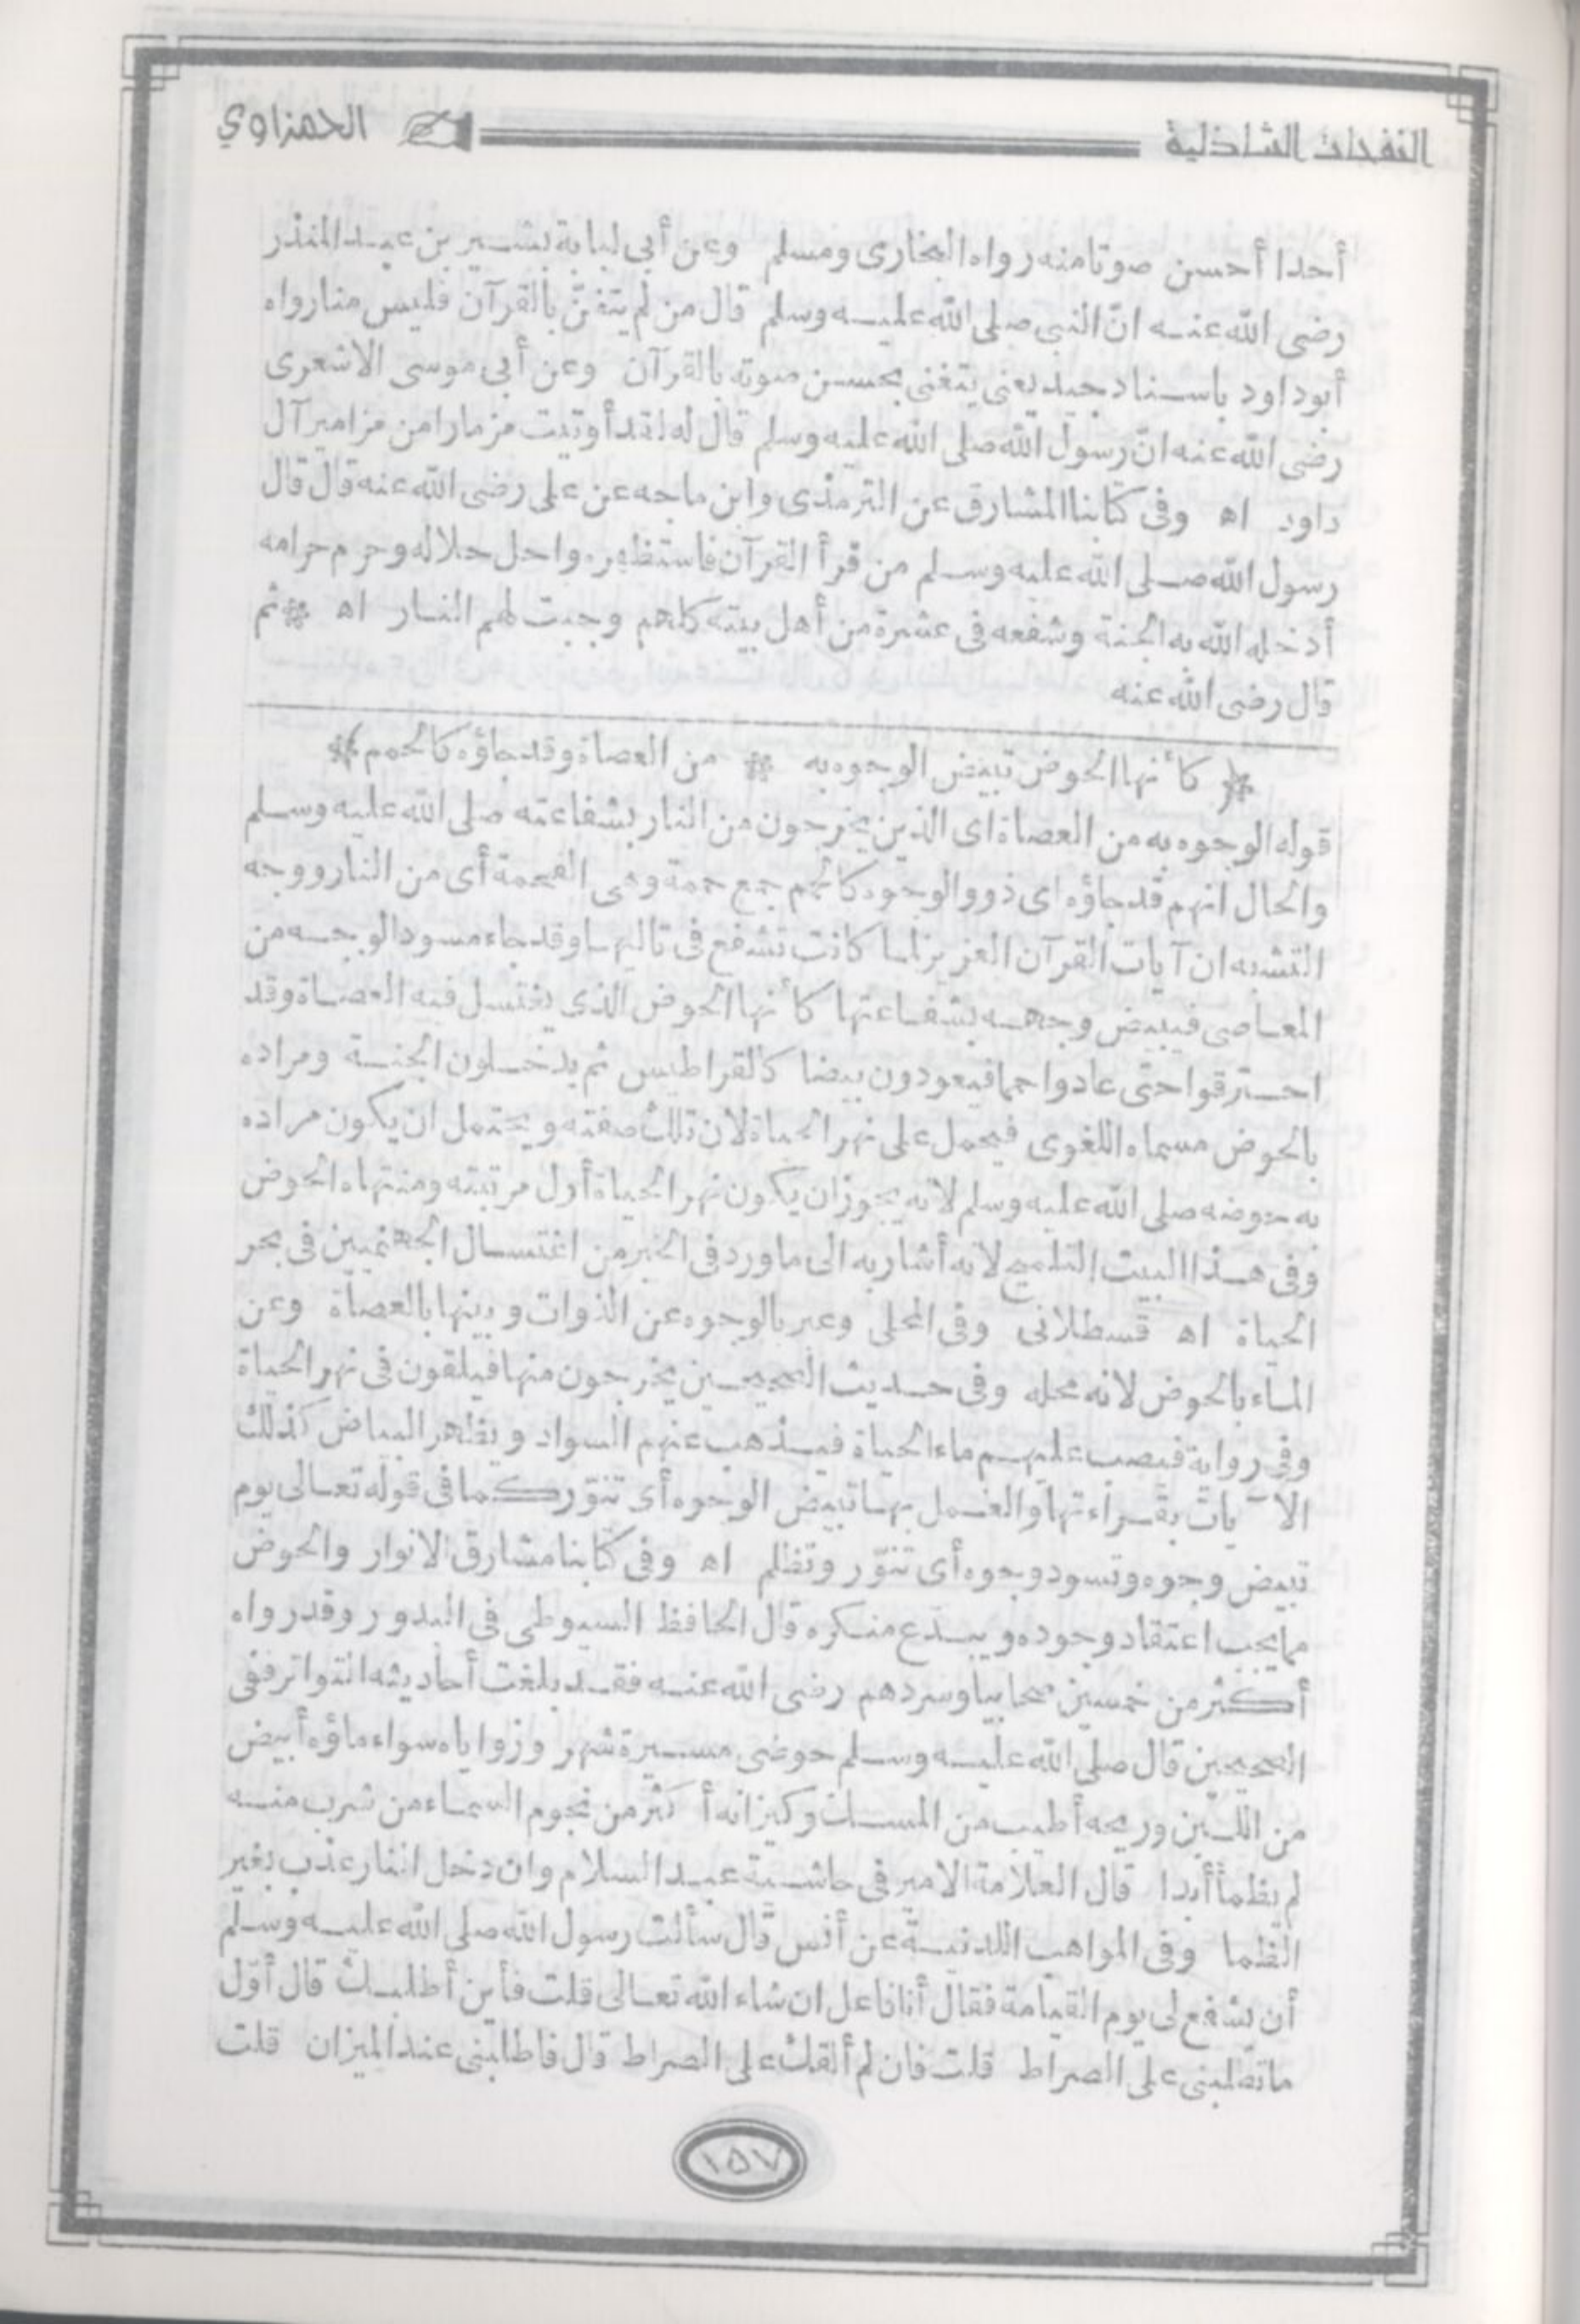 النفحات الشاذلية
الحمزاوي
أحدا أحسن صوتا منه رواه البخارى ومسلم وعن أبى لبابة بشير بن عبد المنذر
رضى الله عنه انّ النبى صلى الله عليه وسلم قال من لم يتغنّ بالقرآن فليس منا رواه
أبو داود باسناد جيد يعنى يتغنى يحسن صوته بالقرآن وعن أبى موسى الاشعرى
رضى الله عنه انّ رسول الله صلى الله عليه وسلم قال له لقد أوتيت مزمارا من مزامير آل
داود اه وفى كتابنا المشارق عن الترمذى وابن ماجه عن على رضى الله عنه قال قال
رسول الله صلى الله عليه وسلم من قرأ القرآن فاستظهره واحل حلاله وحرم حرامه
أدخله الله به الجنة وشفعه فى عشرة من أهل بيته كلهم وجبت لهم النار اه * ثم
قال رضى الله عنه
* كأنها الحوض تبيض الوجوه به * من العصاة وقد جاؤه كالحمم *
قوله الوجوه به من العصاة اى الذين يخرجون من النار بشفاعته صلى الله عليه وسلم
والحال انهم قد جاؤه اى ذوو الوجوه كالحمم جمع حمة وهى الفحمة أى من النار ووجه
التشبه ان آيات القرآن العزيز لما كانت تشفع فى تاليها وقد جاء مسود الوجه من
المعاصى فيبيض وجهه بشفاعتها كأنها الحوض الذى يغتسل فيه العصاة وقد
احترقوا حتى عادوا حما فيعودون بيضا كالقراطيس ثم يدخلون الجنة ومراده
بالحوض مسماه اللغوى فيحمل على نهر الحياة لان تلك صفته ويحتمل ان يكون مراده
به حوضه صلى الله عليه وسلم لانه يجوز ان يكون نهر الحياة أول مرتبته ومنتهاه الحوض
وفى هذا البيت التلميح لانه أشار به الى ما ورد فى الخبر من اغتسال الجهنميين فى بحر
الحياة اه قسطلانى وفى المحلى وعبر بالوجوه عن الذوات وبينها بالعصاة وعن
الماء بالحوض لانه محله وفى حديث الصحيحين يخرجون منها فيلقون فى نهر الحياة
وفى رواية فيصب عليهم ماء الحياة فيذهب عنهم السواد ويظهر البياض كذلك
الآيات بقراءتها والعمل بها تبيض الوجوه أى تنوّر كما فى قوله تعالى يوم
تبيض وجوه وتسود وجوه أى تنوّر وتظلم اه وفى كتابنا مشارق الانوار والحوض
مما يجب اعتقاد وجوده ويبدّع منكره قال الحافظ السيوطى فى البدور وقد رواه
أكثر من خمسين صحابيا وسردهم رضى الله عنه فقد بلغت أحاديثه التواتر ففى
الصحيحين قال صلى الله عليه وسلم حوضى مسيرة شهر وزواياه سواء ماؤه أبيض
من اللبن وريحه أطيب من المسك وكيزانه أكثر من نجوم السماء من شرب منه
لم يظمأ أبدا قال العلامة الامير فى حاشية عبد السلام وان دخل النار عذب بغير
الظما وفى المواهب اللدنية عن أنس قال سألت رسول الله صلى الله عليه وسلم
أن يشفع لى يوم القيامة فقال أنا فاعل ان شاء الله تعالى قلت فأين أطلبك قال أوّل
ما تطلبنى على الصراط قلت فان لم ألقك على الصراط قال فاطلبنى عند الميزان قلت
١٥٧